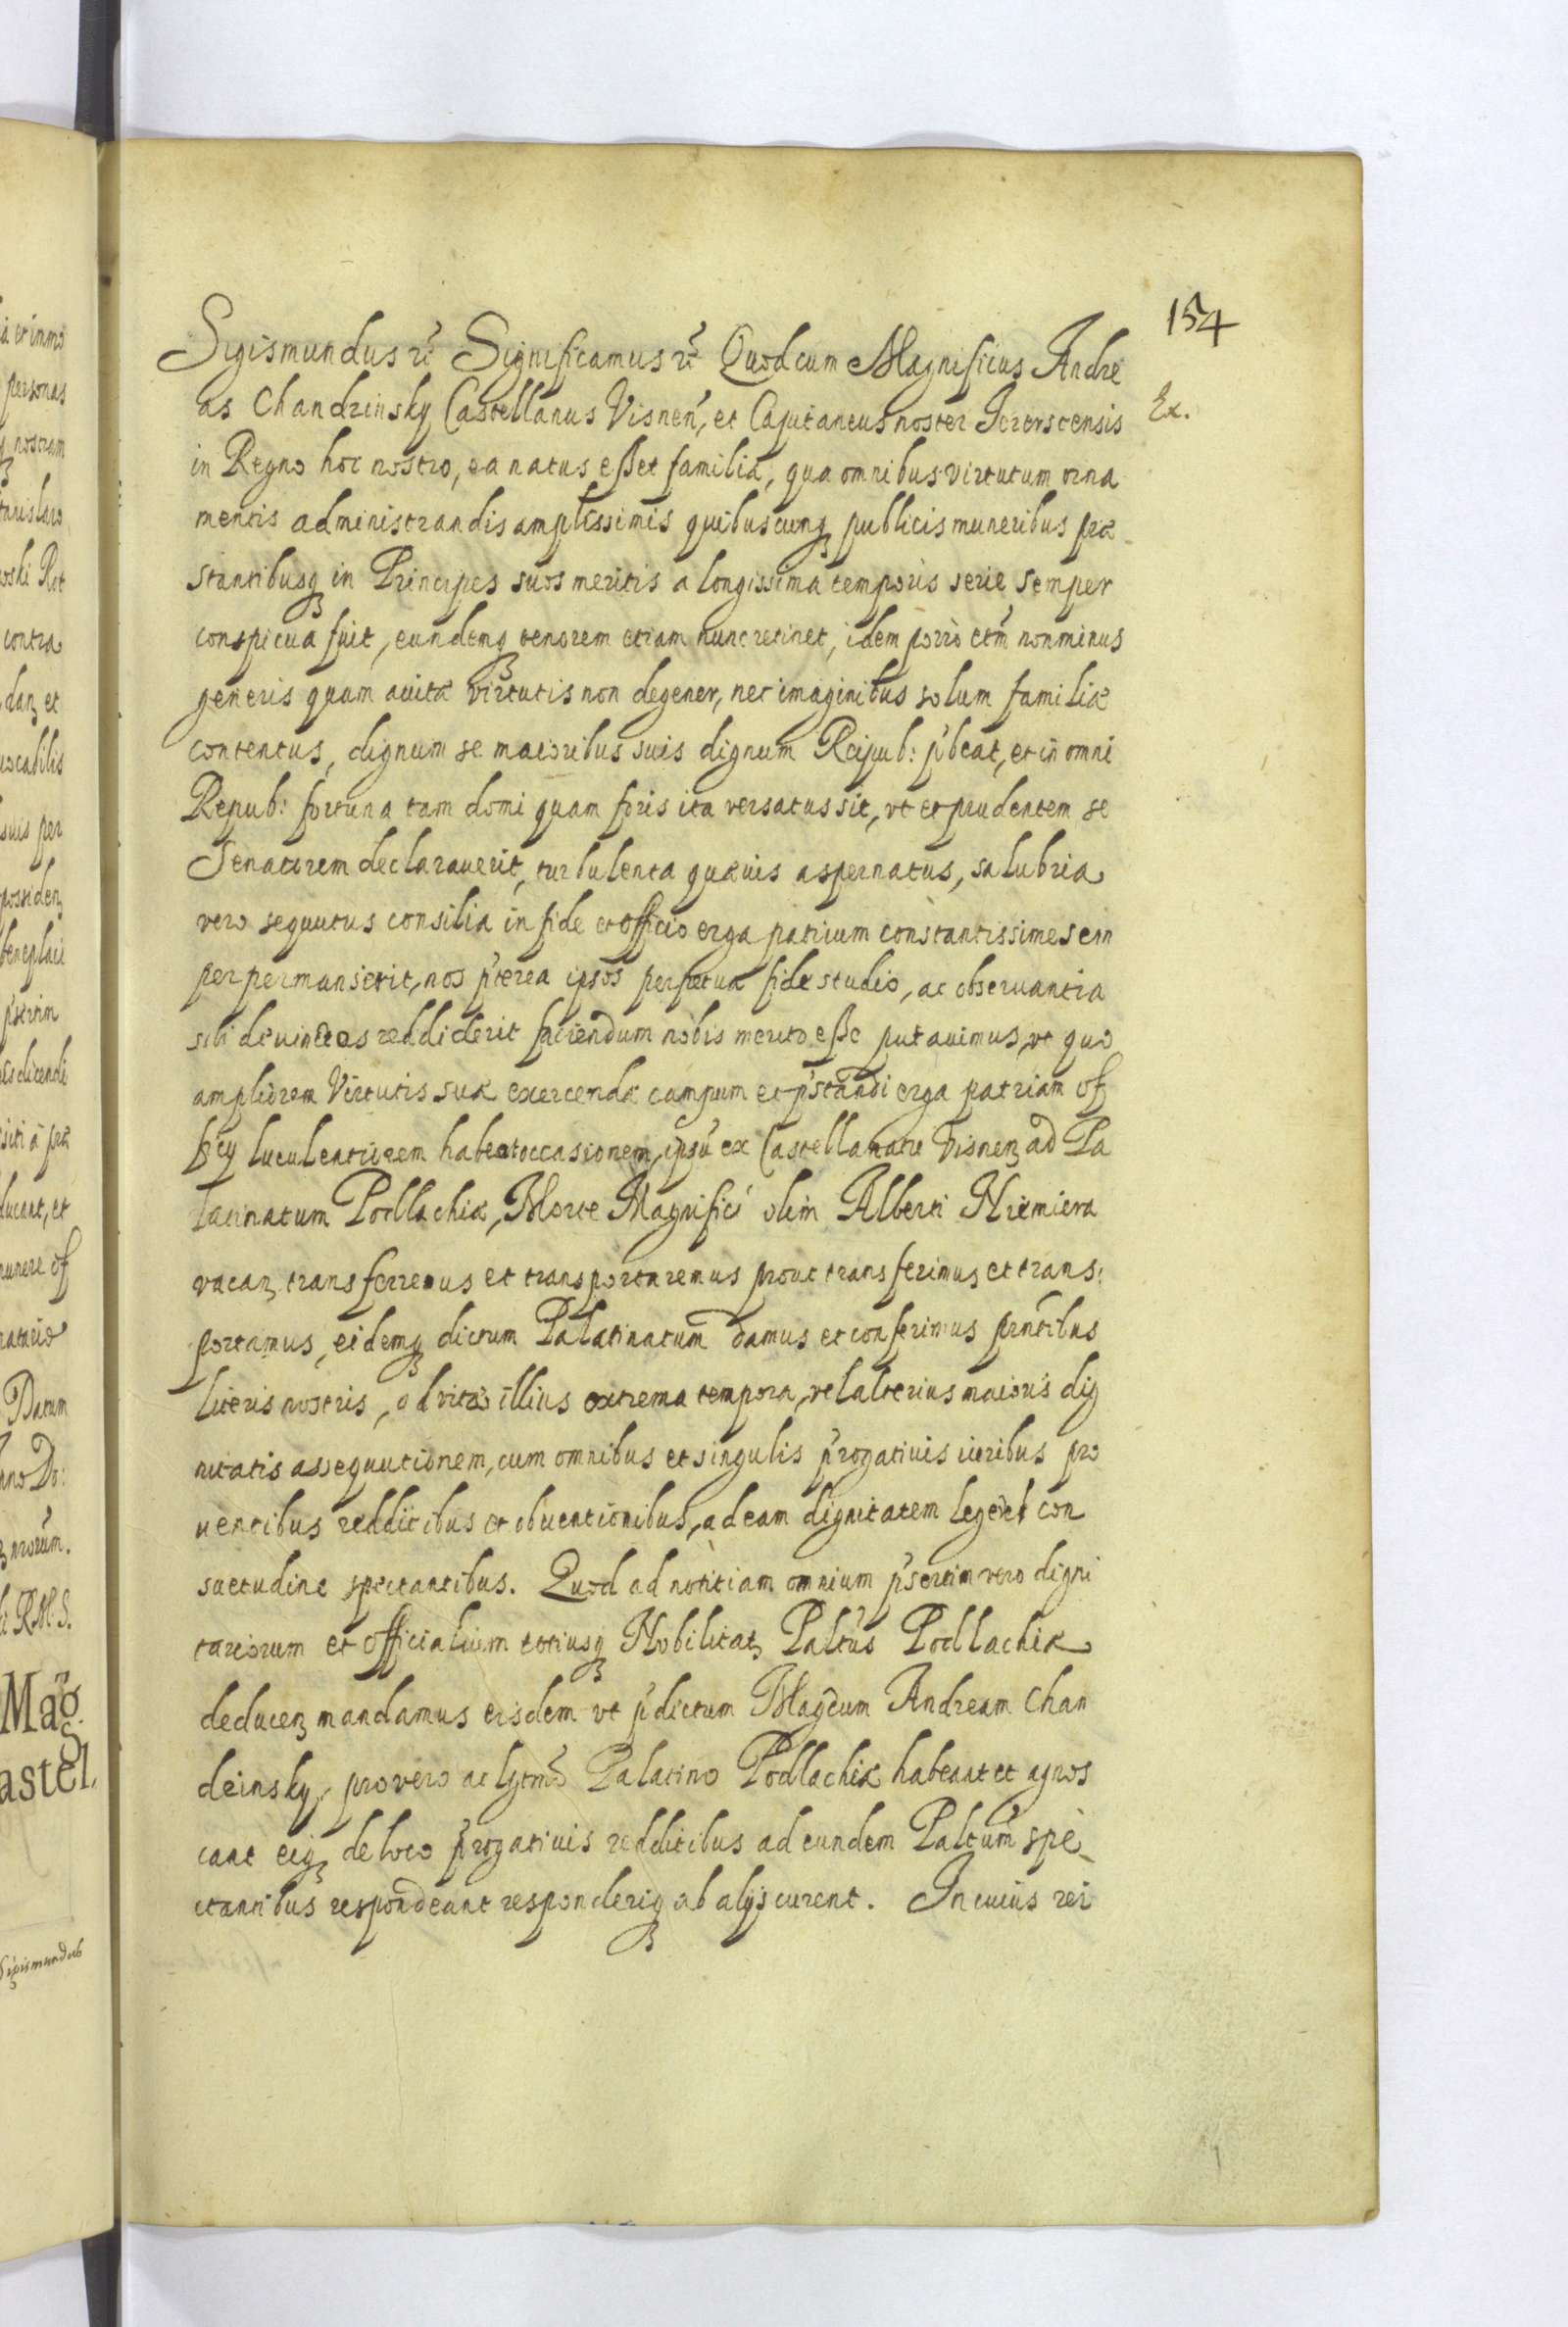 154
Sigismundus rc̃ Significamus rc̃ Quod cum Magnificus Andre
as Chandzinsky Castellanus Visnen̄, et Capitaneus noster
Ex.
in Regno hoc nostro, ea natus eßet familia, qua omnibus virtutum orna
mentis administrandis amplissimis quibuscunq₃ publicis muneribus præ
stantibusq₃ in Principes suos meritis a longissima temporis serie semper
conspicua fuit, eundemq₃ tenorem etiam nunc retinet, idem porro etm̃ non minus
generis quam auitæ virtutis non degener, nec imaginibus solum familiæ
contentus, dignum se maioribus suis dignum Reipub: p̃beat, et in omni
Repub: fortuna tam domi quam foris ita versatus sit, vt et prudentem se
Senatorem declarauerit, turbulenta quæuis aspernatus, salubria
vero sequutus consilia in fide et officio erga patrium constantissime sem
per permanserit, nos p̃terea ipsos perpetua fide studio, ac obseruantia
sibi deuinctos reddiderit faciendum nobis merito eße putauimus, vt quo
ampliorem Virtutis suæ exercendæ campum et p̃standi erga patriam of
ficij luculentiorem habeat occasionem, ipsū ex Castellanatu Visnen₃ ad Pa
latinatum Podlachiæ, Morte Magnifici olim Alberti Niemiera
vacan₃ transferremus et transportaremus prout transferimus et trans:
portamus, eidemq₃ dictum Palatinatum damus et conferimus pr̃ntibus
literis nostris, ad vitæ illius extrema tempora, vel alterius maioris dig
nitatis assequutionem, cum omnibus et singulis p̃rogatiuis iuribus pro
uentibus redditibus et obuentionibus, ad eam dignitatem lege vel con
suetudine spectantibus. Quod ad notitiam omnium p̃sertim vero digni
tariorum et officialium totiusq₃ Nobilitat₃ Paltūs Podlachiæ
deducen₃ mandamus eisdem vt p̃dictum Magcum Andream Chan
dzinsky, pro vero ac lgtmō Palatino Podlachiæ habeant et agnos
cant eiq₃ de loco p̃rogatiuis redditibus ad eundem Paltum̃ spe_
ctantibus respondeant responderiq₃ ab alijs curent. In cuius rei